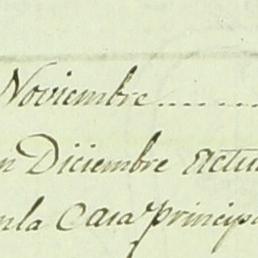 Noviembre..........
n Diciembre actu
nla Casa principa